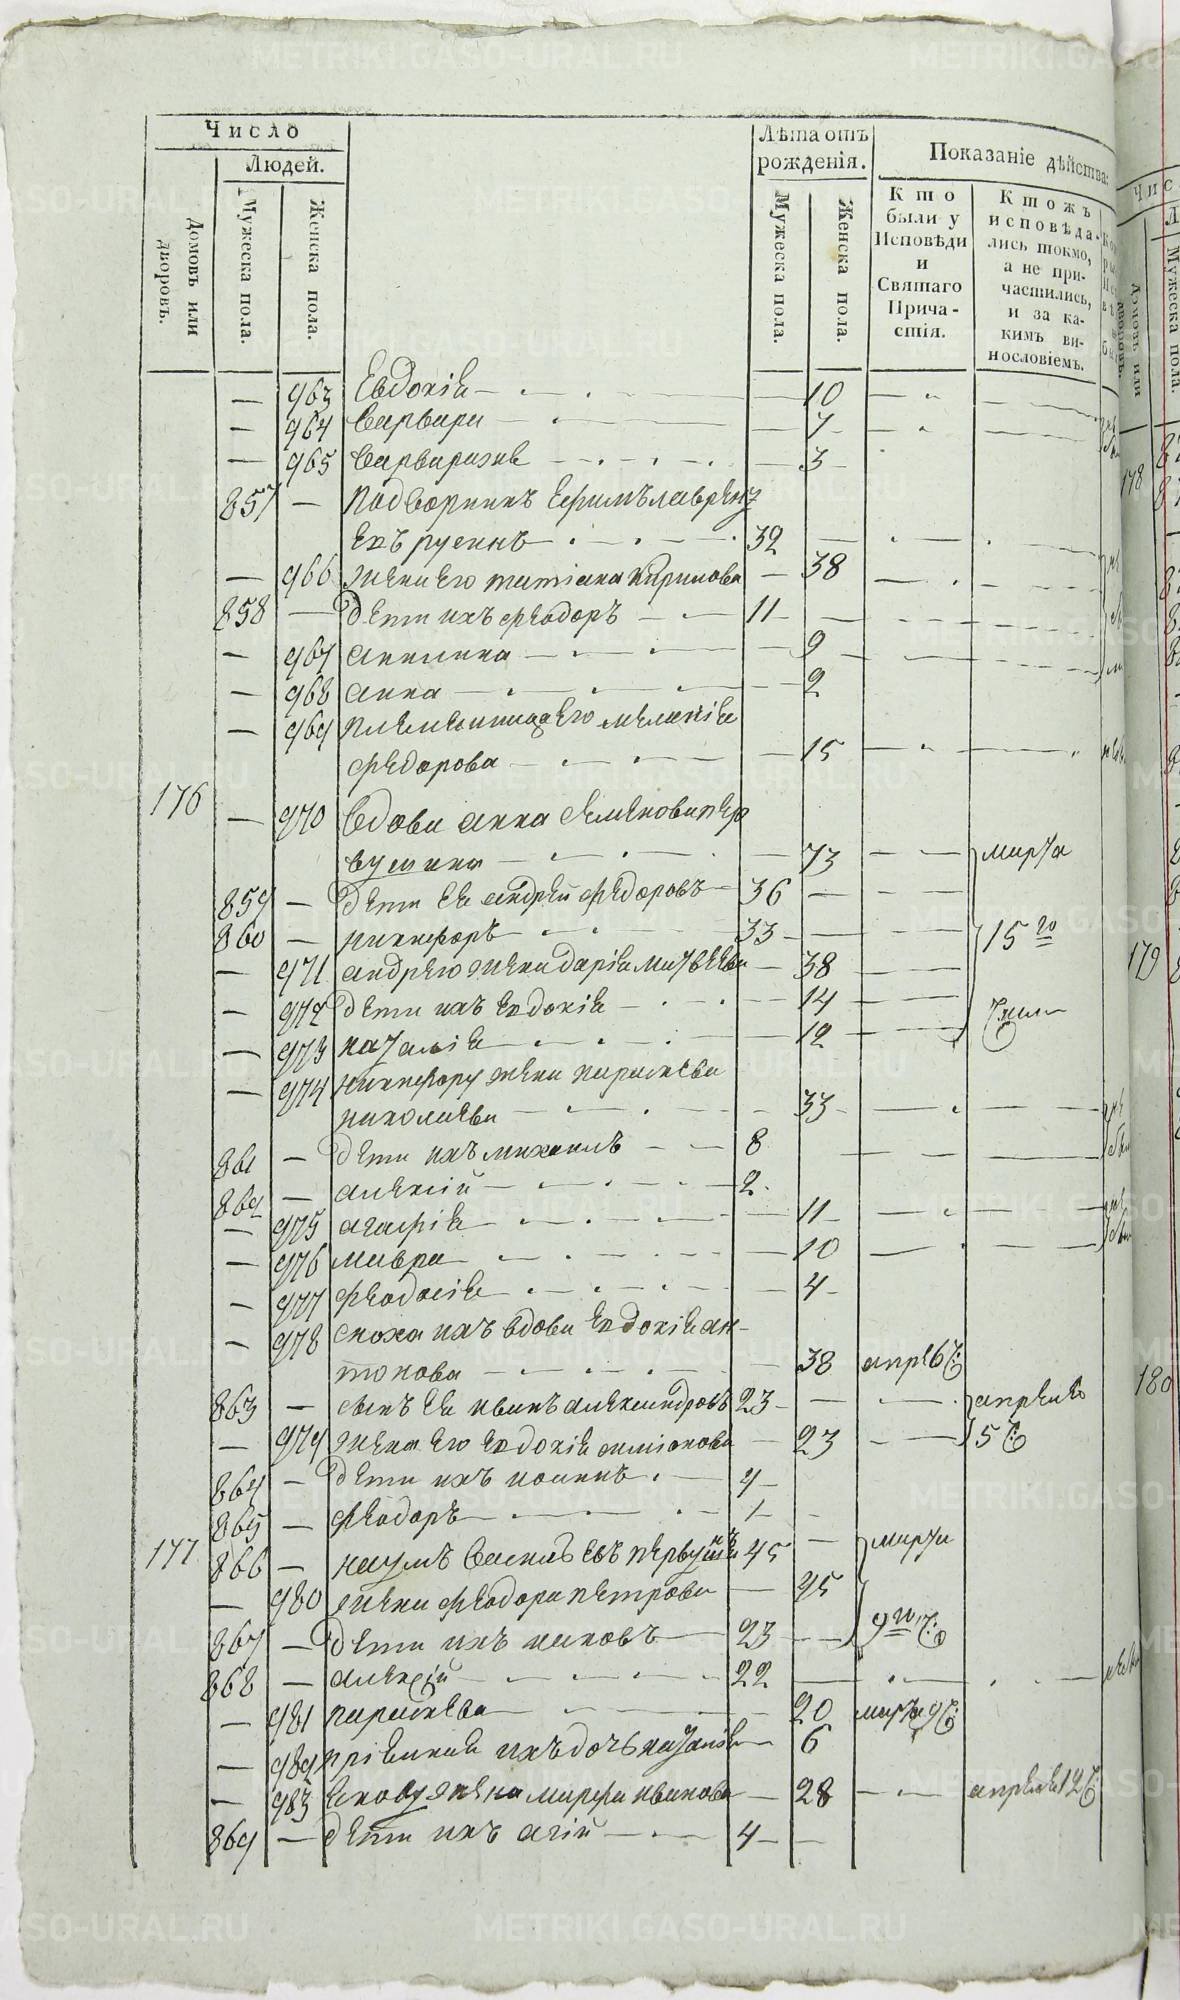 Число
Людей.
Домовъ или дворовъ.
Мужеска пола.
Женска пола.
Лѣта отъ рожденія.
Мужеска пола.
Женска пола.
Показаніе дѣйства:
Кто были у Исповѣди и Святаго Причастія.
Ктожъ исповѣдались токмо, а не причастились, и за какимъ винословіемъ.
— 963 Евдокія — 10
— 964 Варвара — 7
— 965 Варвара же — 3
857 — подворникъ Ефимъ Лавренть
евъ русинъ — 32
— 966 жена его татіана Кирилова — 38
858 — дети ихъ Феодоръ — 11
— 967 акилина — 9
— 968 анна — 2
— 969 племенница его меланія
федорова — 15
176 — 970 вдова анна Семенова пер
вушина — 73 марта
859 — дети ея андрей федоровъ 36
860 — никифоръ — 33 15 го
— 971 андрею жена дарія матвеева — 38
— 972 дети ихъ евдокія — 14 числа
— 973 наталія — 12
— 974 никифору жена параскева
николаева — 33
861 — дети ихъ михаилъ — 8
862 — алексій — 2
— 975 агафія — 11
— 976 мавра — 10
— 977 феодосія — 4
— 978 сноха ихъ вдова евдокія ан-
тонова — 38 апре 6 ч:
863 — сынъ ея иванъ александровъ 23 — апреля
— 979 жена его евдокія симіонова — 23 5 ч:
864 — дети ихъ иоаннъ — 4
865 — феодоръ — 1
177 866 — наумъ Василь евъ первушинъ 45 — марта
— 980 жена феодора петрова — 45
867 — дети ихъ иаковъ — 23 9 го ч:
868 — алексій — 22
— 981 параскева — 20 марта 9 ч:
— 982 пріемная ихъ дочь наталія — 6
— 983 Якову жена марфа иванова — 28 апреля 12 ч:
869 — дети ихъ агій — 4
178
179
180
METRIKI.GASO-URAL.RU